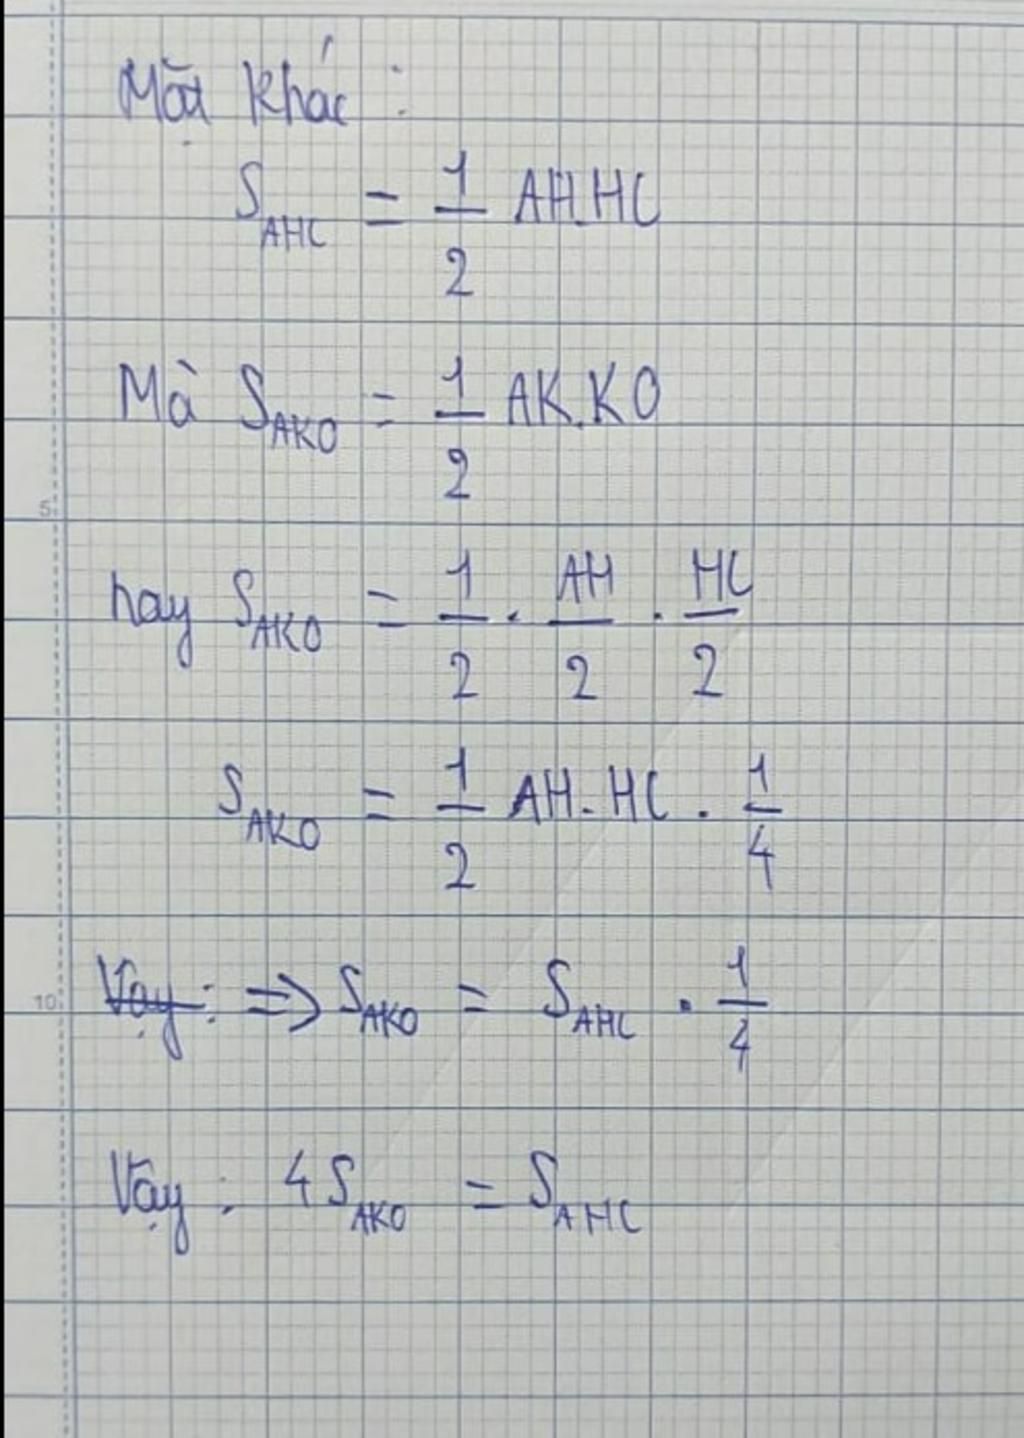 Mặt khác :
S_AHC = 1/2 AH.HC
Mà S_AKO = 1/2 AK.KO
hay S_AKO = 1/2 . AH/2 . HC/2
S_AKO = 1/2 AH.HC . 1/4
Vậy : => S_AKO = S_AHC . 1/4
Vậy : 4 S_AKO = S_AHC
5
10